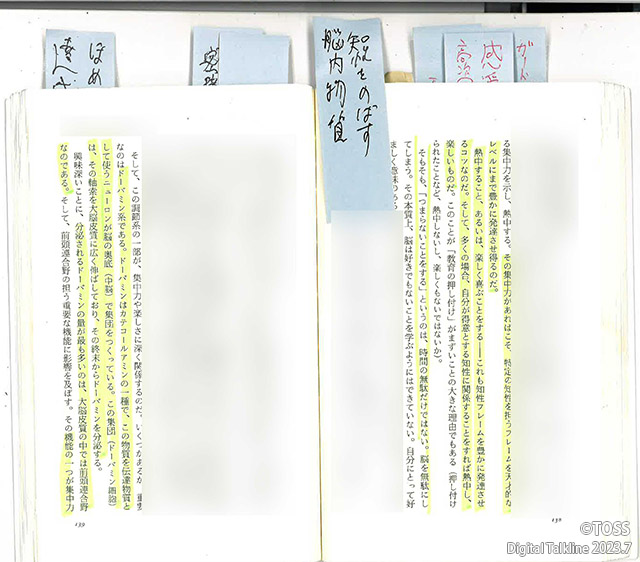 知能をのばす
脳内物質
ほめ
達人
ガード
る集中力を示し、熱中する。その集中力があればこそ、特定の知性を担うフレームを天才的な
レベルにまで豊かに発達させ得るのだ。
熱中すること、あるいは、楽しく喜ぶことをする――これも知性フレームを豊かに発達させ
るコツなのだ。そして、多くの場合、自分が得意とする知性に関係することをすれば熱中し、
楽しいものだ。このことが「教育の押し付け」がまずいことの大きな理由でもある（押し付け
られたことなど、熱中しないし、楽しくもないではないか）。
そもそも、「つまらないことをする」というのは、時間の無駄だけではない。脳を無駄にし
てしまう。その本質上、脳は好きでもないことを学ぶようにはできていない。自分にとって好
ましく意味のある
138
そして、この調節系の一部が、集中力や楽しさに深く関係するのだ。いくつかあるが、重要
なのはドーパミン系である。ドーパミンはカテコールアミンの一種で、この物質を伝達物質と
して使うニューロンが脳の奥底（中脳）で集団をつくっている。この集団（ドーパミン細胞）
は、その軸索を大脳皮質に広く伸ばしており、その終末からドーパミンを分泌する。
興味深いことに、分泌されるドーパミンの量が最も多いのは、大脳皮質の中では前頭連合野
なのである。そして、前頭連合野の担う重要な機能に影響を及ぼす。その機能の一つが集中力
139
©TOSS
Digital Talkline 2023.7